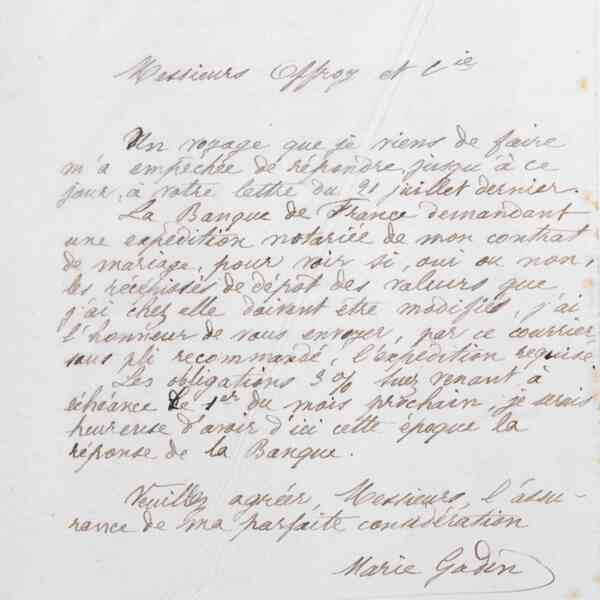 Messieurs Offroy et Cie
Un voyage que je viens de faire
m'a empechée de répondre, jusqu'à ce
jour, à votre lettre du 21 juillet dernier.
La Banque de France demandant
une expédition notariée de mon contrat
de mariage, pour voir si, oui ou non,
les récépissés de dépot des valeurs que
j'ai chez elle doivent être modifiés, j'ai
l'honneur de vous envoyer, par ce courrier
sous pli recommandé, l'expédition requise.
Les obligations 3 % venant à
echéance le 1er du mois prochain, je serais
heureuse d'avoir d'ici cette époque la
réponse de la Banque.
Veuillez agréer, Messieurs, l'assu-
rance de ma parfaite considération
Marie Gadin